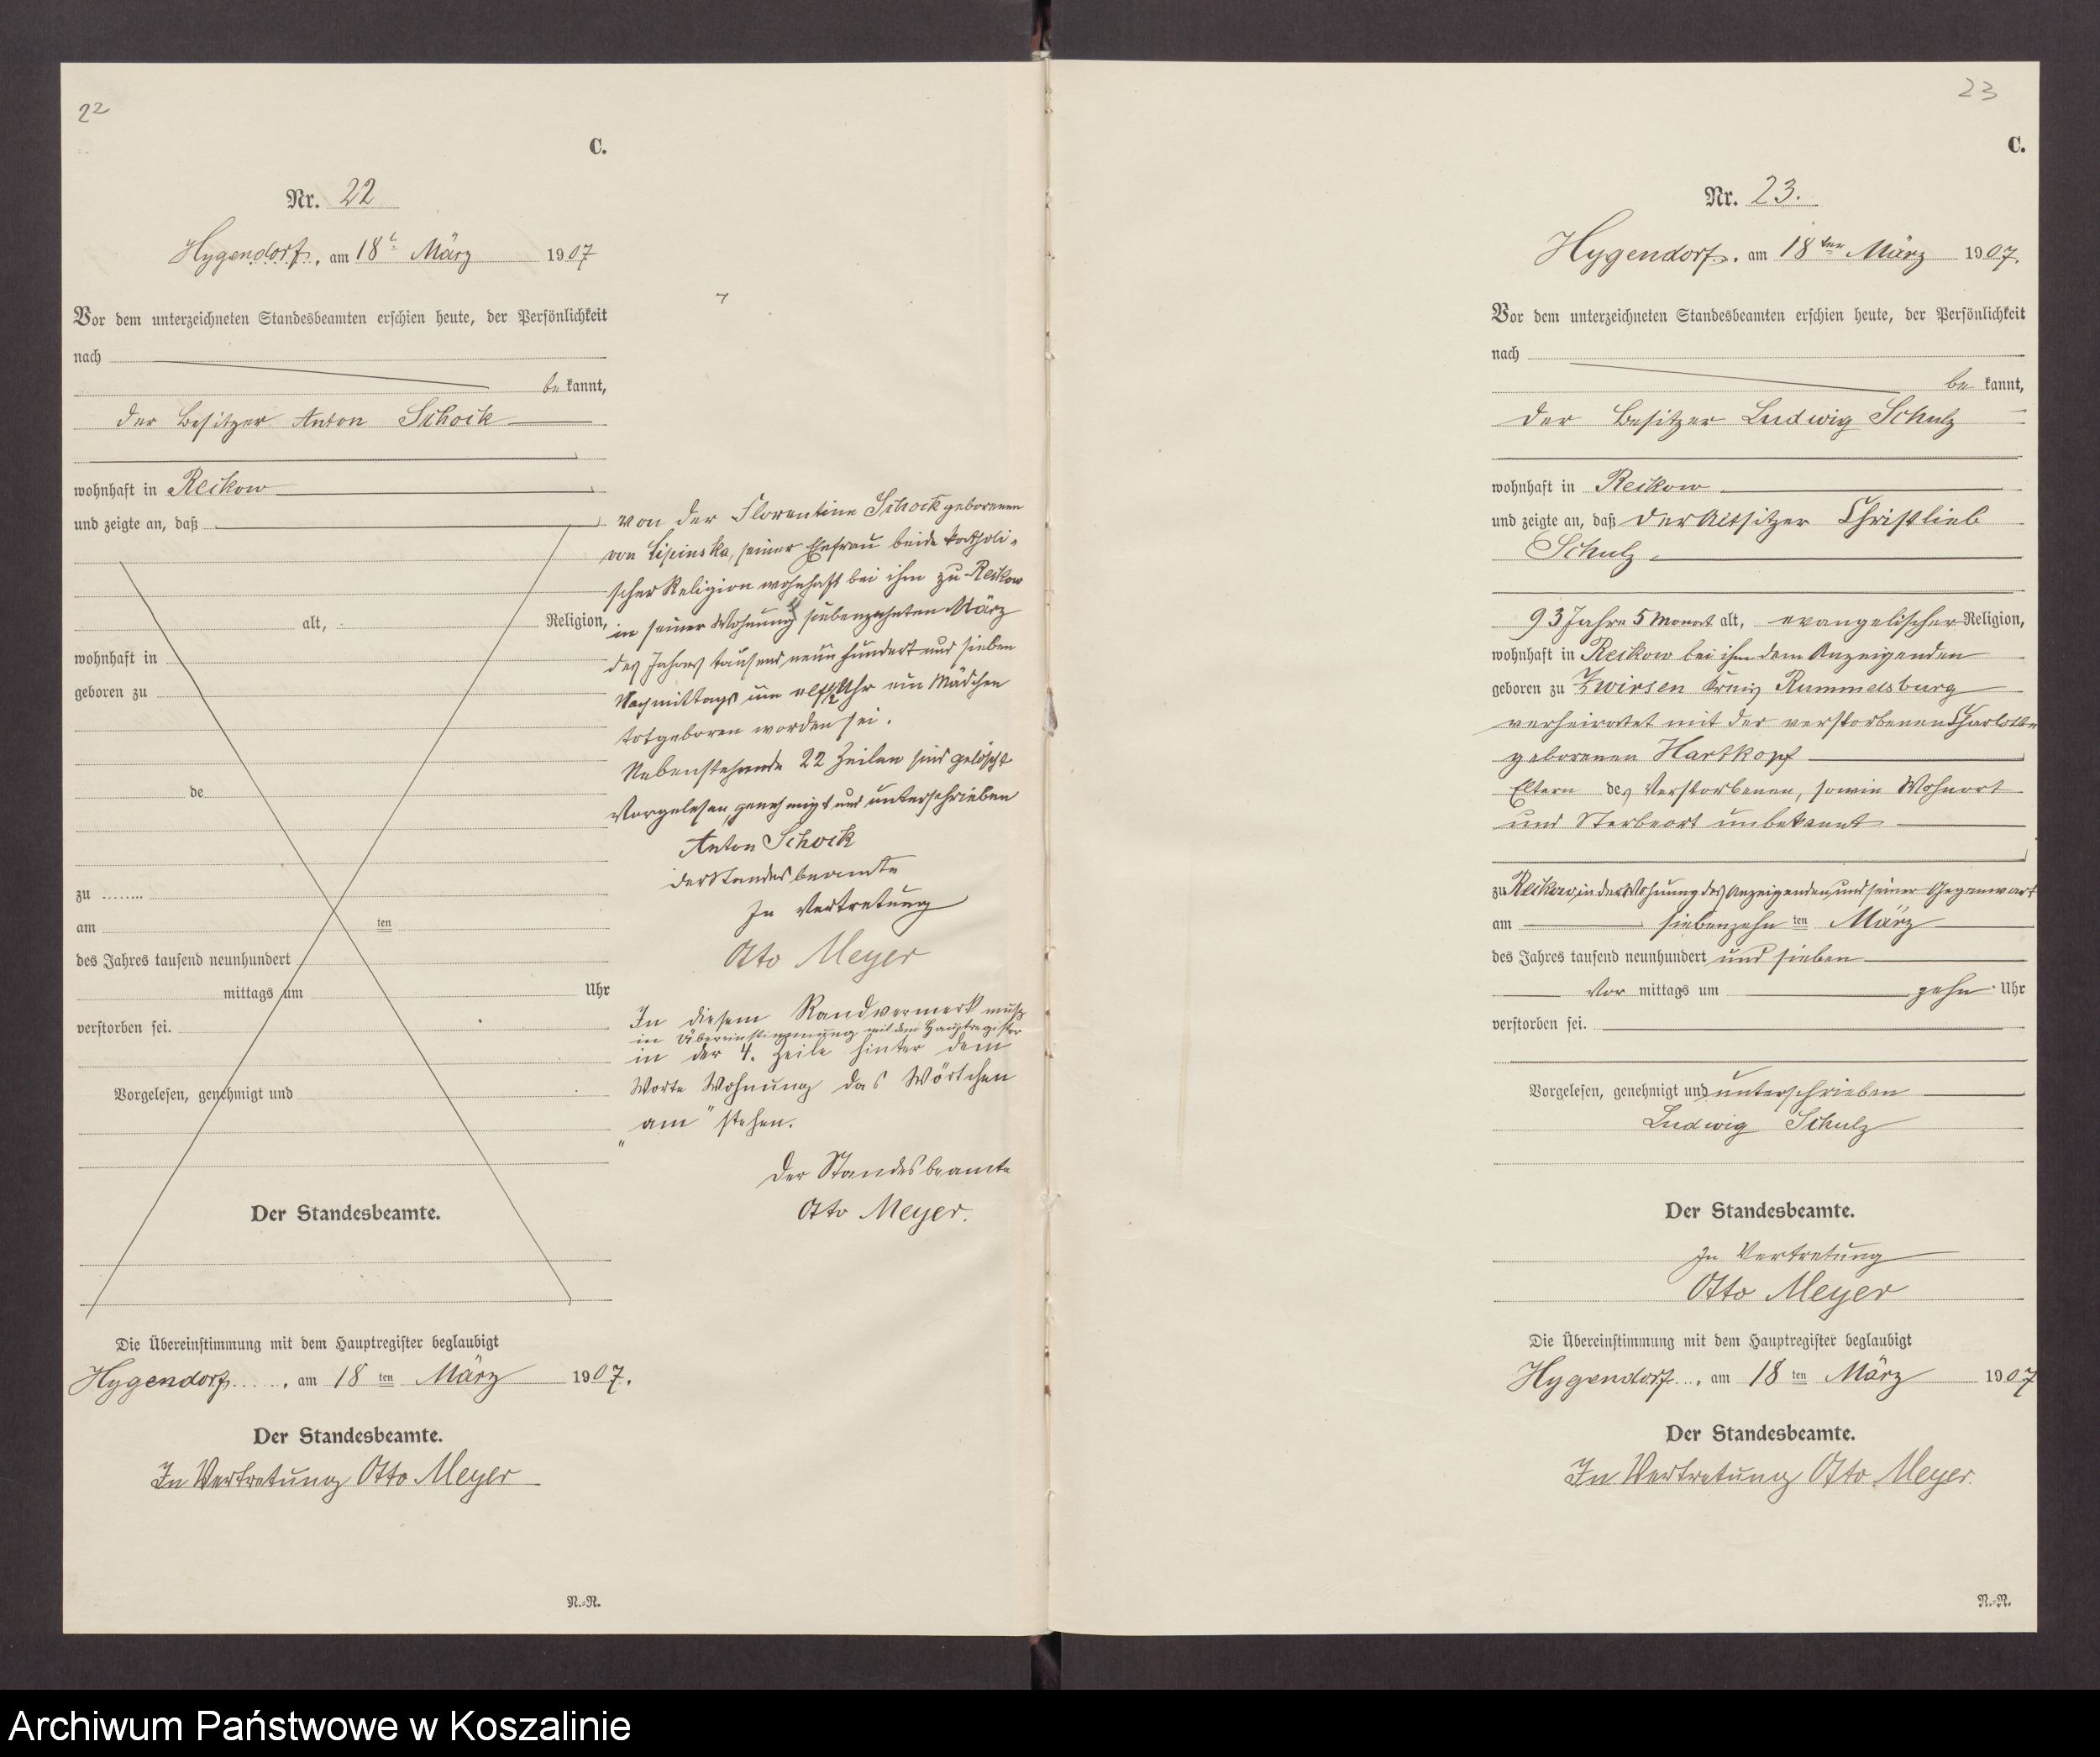 22
C.
Nr. 22
Hygendorf, am 18t März 1907
Vor dem unterzeichneten Standesbeamten erschien heute, der Persönlichkeit
nach
be kannt,
der Besitzer Anton Schock
wohnhaft in Reikow
und zeigte an, daß
alt, Religion,
wohnhaft in
geboren zu
de
zu
am ten
des Jahres tausend neunhundert
mittags um Uhr
verstorben sei.
Vorgelesen, genehmigt und
Der Standesbeamte.
Die Übereinstimmung mit dem Hauptregister beglaubigt
Hygendorf, am 18 ten März 1907.
Der Standesbeamte.
In Vertretung Otto Meyer
N.-R.
von der Florentine Schock geborenen
von Lipinska, seiner Ehefrau beide katholi-
scher Religion wohnhaft bei ihm zu Reikow
in seiner Wohnung siebenzehnten März
des Jahres tausend neun hundert und sieben
Nachmittags um elf ½ Uhr ein Mädchen
totgeboren worden sei.
Nebenstehende 22 Zeilen sind gelöscht
Vorgelesen, genehmigt und unterschrieben
Anton Schock
Der Standesbeamte
In Vertretung
Otto Meyer
In diesem Randvermerk muß
in Übereinstimmung mit dem Hauptregister
in der 4. Zeile hinter dem
Worte Wohnung das Wörtchen
„am" stehen.
Der Standesbeamte
Otto Meyer.
23
C.
Nr. 23.
Hygendorf, am 18ten März 1907.
Vor dem unterzeichneten Standesbeamten erschien heute, der Persönlichkeit
nach
be kannt,
der Besitzer Ludwig Schulz
wohnhaft in Reikow
und zeigte an, daß der Altsitzer Christlieb
Schulz
93 Jahre 5 Monat alt, evangelischer Religion,
wohnhaft in Reikow bei ihm dem Anzeigenden
geboren zu Zwirsen Kreis Rummelsburg
verheiratet mit der verstorbenen Charlotte
geborenen Hartkopf
Eltern des Verstorbenen, sowie Wohnort
und Sterbeort unbekannt
zu Reikow, in der Wohnung des Anzeigenden, und seiner Gegenwart
am siebenzehn ten März
des Jahres tausend neunhundert und sieben
Vor mittags um zehn Uhr
verstorben sei.
Vorgelesen, genehmigt und unterschrieben
Ludwig Schulz
Der Standesbeamte.
In Vertretung
Otto Meyer
Die Übereinstimmung mit dem Hauptregister beglaubigt
Hygendorf, am 18 ten März 1907
Der Standesbeamte.
In Vertretung Otto Meyer.
N.-R.
Archiwum Państwowe w Koszalinie